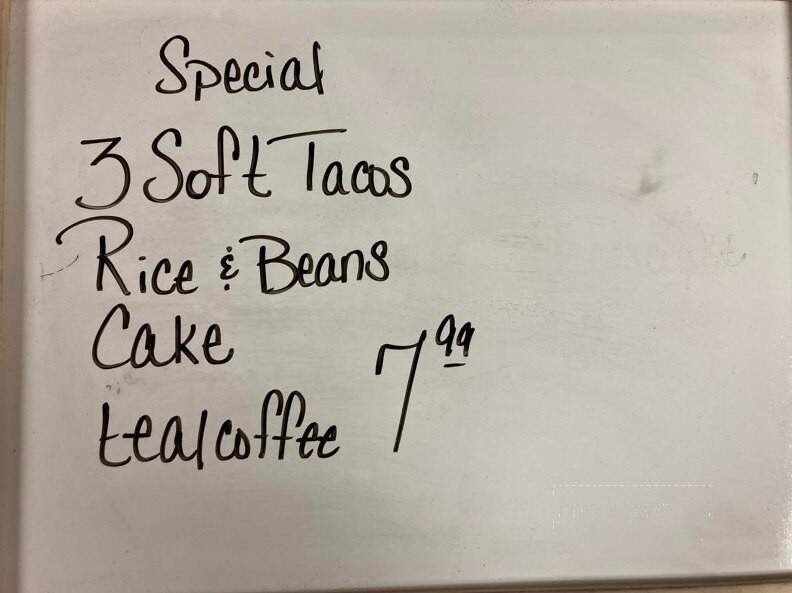 Special
3 Soft Tacos
Rice & Beans
Cake
tea/coffee 7.99